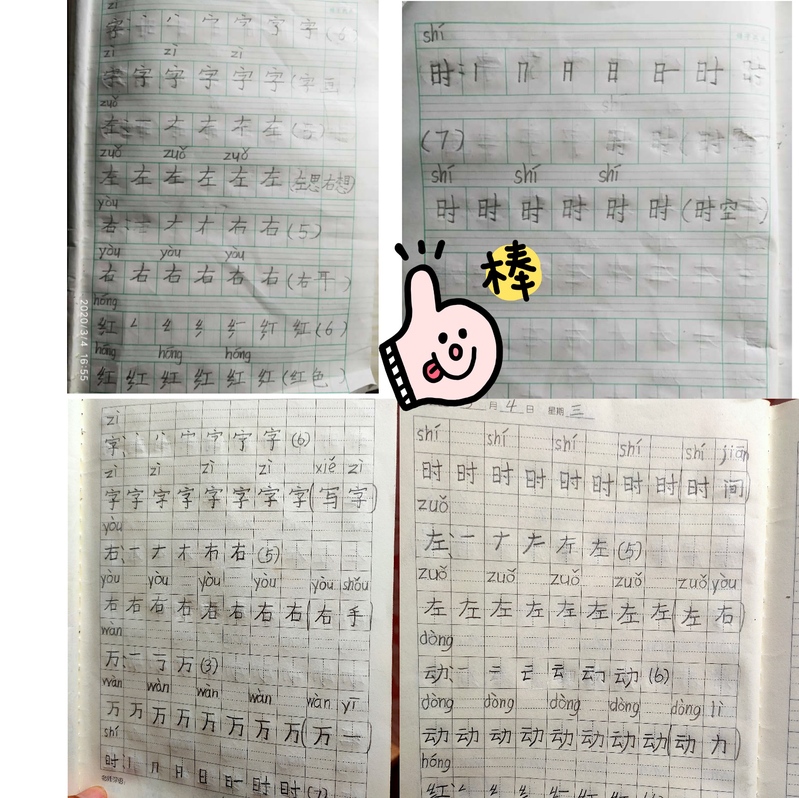 zì
字 丶 丷 宀 宁 字 字 (6)
zì zì zì
字 字 字 字 字 字 (字画
zuǒ
左: 一 ナ 𠂇 左 左 (5)
zuǒ zuǒ zuǒ
左 左 左 左 左 左 (左思右想)
yòu
右: 一 ナ 才 右 右 (5)
yòu yòu yòu
右 右 右 右 右 右 (右耳)
hóng
红 纟 红 红 (6)
hóng hóng hóng
红 红 红 红 红 红 (红色)
2020/3/4 16:55
shí
时: 丨 冂 月 日 旷 时 时
(7)
shí shí shí
时 时 时 时 时 时 (时空)
棒
zì
字: 丶 丷 宀 宁 字 字 (6)
zì zì zì zì xiě zì
字 字 字 字 字 字 字 字 (写 字)
yòu
右: 一 ナ 才 右 右 (5)
yòu yòu yòu yòu yòu shǒu
右 右 右 右 右 右 右 右 (右 手)
wàn
万: 一 丁 万 (3)
wàn wàn wàn wàn wàn yī
万 万 万 万 万 万 万 万 (万 一)
shí
时: 丨 冂 月 日 旷 时 时 (7)
月 4 日 星期 三
shí shí shí shí shí jiān
时 时 时 时 时 时 时 时 (时 间)
zuǒ
左: 一 ナ 𠂇 左 左 (5)
zuǒ zuǒ zuǒ zuǒ zuǒ yòu
左 左 左 左 左 左 左 左 (左 右)
dòng
动: 一 二 云 云 动 动 (6)
dòng dòng dòng dòng dòng lì
动 动 动 动 动 动 动 动 (动 力)
hóng
红: